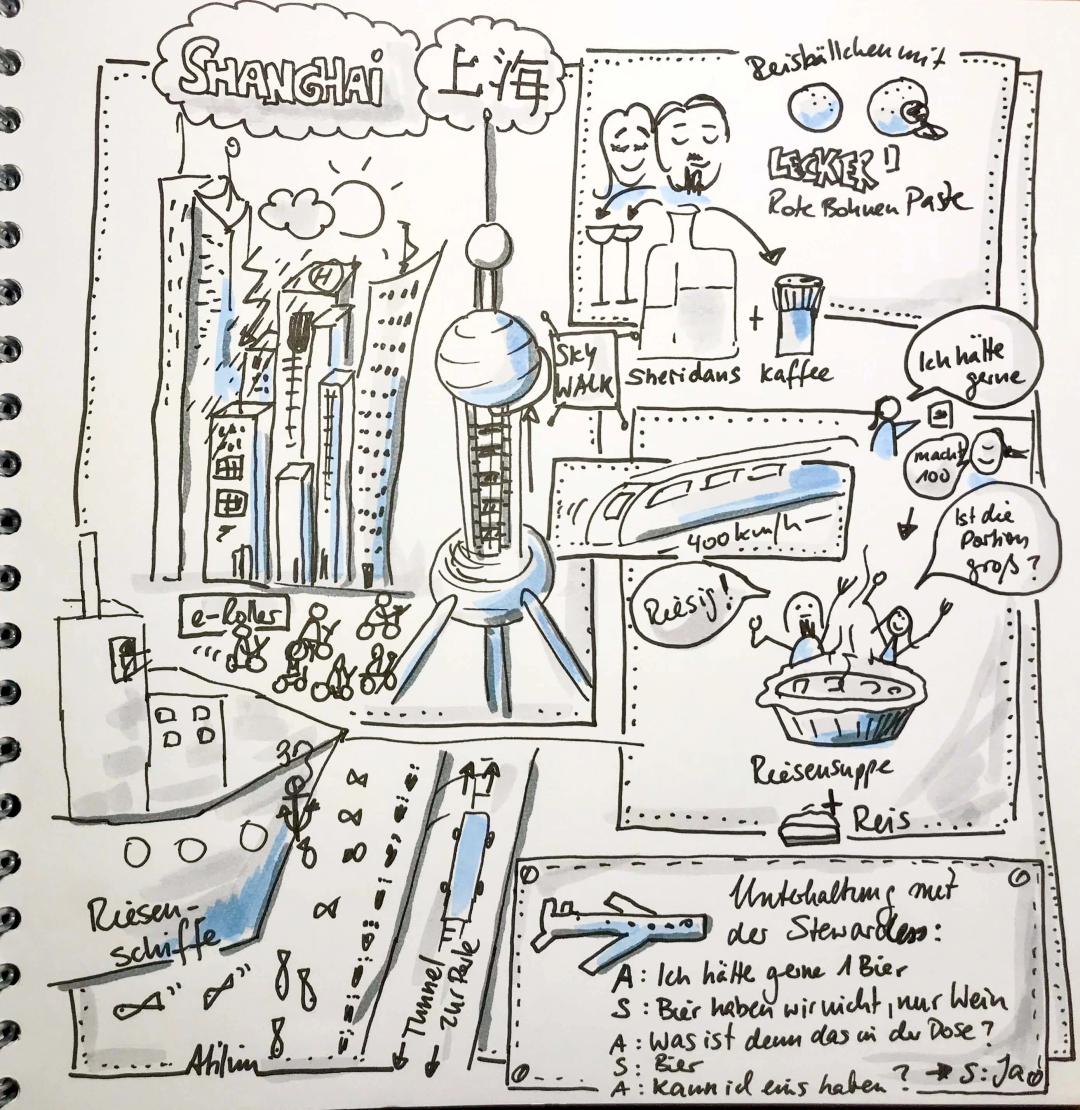 SHANGHAI
上海
Reisbällchen mit
LECKER!
Rote Bohnen Paste
SKY
WALK
Sheridans + Kaffee
Ich hätte
gerne
macht
100
400 km/h
Ist die
Portion
groß?
Riesig!
e-Roller
H
Riesensuppe
+
Reis
Riesen-
schiffe
Tunnel
Unterhaltung mit
der Stewardess:
A: Ich hätte gerne 1 Bier
S: Bier haben wir nicht, nur Wein
A: Was ist denn das in der Dose?
S: Bier
A: Kann ich eins haben? → S: Ja